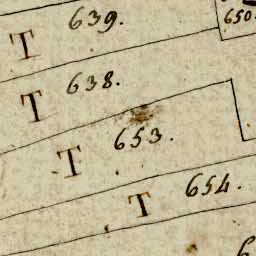 639.
650.
T
638.
T
653.
T
654.
T
6